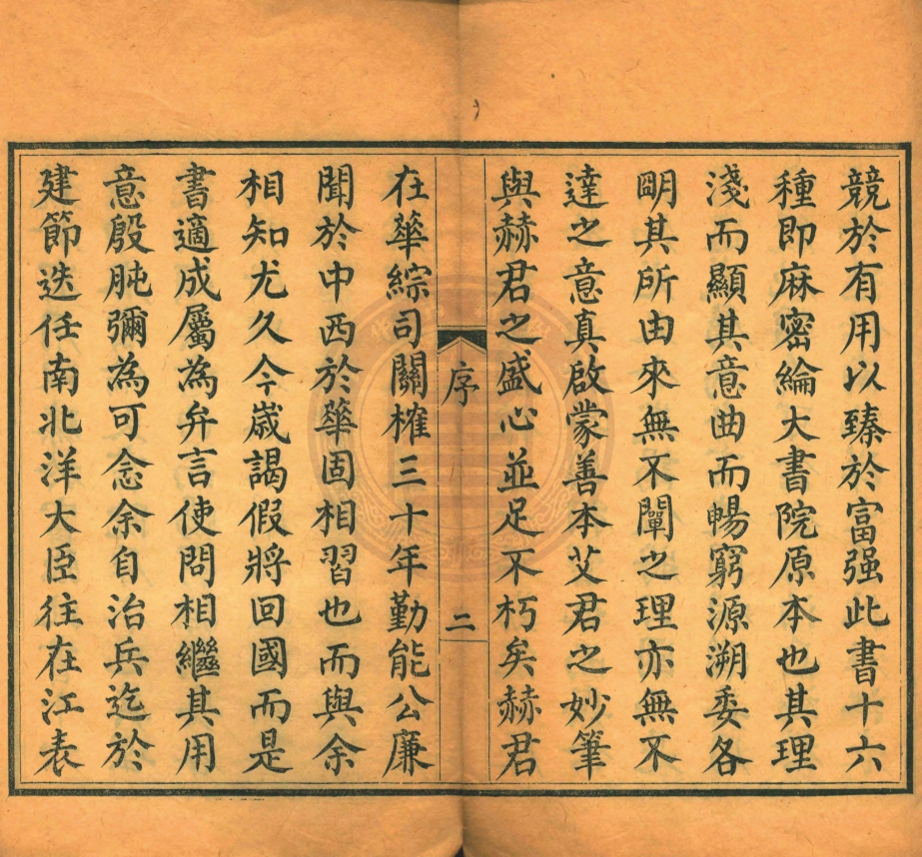 競於有用以臻於富强此書十六
種即麻密綸大書院原本也其理
淺而顯其意曲而暢窮源溯委各
明其所由來無不闡之理亦無不
達之意真啟蒙善本艾君之妙筆
與赫君之盛心並足不朽矣赫君
序
二
在華綜司關榷三十年勤能公廉
聞於中西於華固相習也而與余
相知尤久今歲謁假將回國而是
書適成屬為弁言使問相繼其用
意殷肫彌為可念余自治兵迄於
建節迭任南北洋大臣往在江表